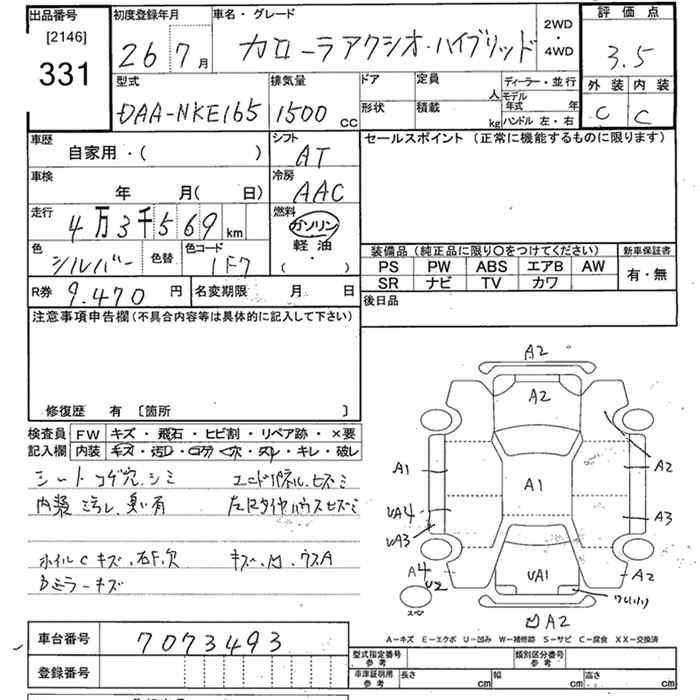 出品番号
[2146]
331
初度登録年月
26 7月
車名・グレード
カローラアクシオ・ハイブリッド
2WD
・4WD
評価点
3.5
外装 内装
C C
型式
DAA-NKE165
排気量
1500 CC
ドア
定員 人
形状
積載 kg
ディーラー・並行
モデル年式 年
ハンドル 左・右
車歴
自家用・( )
シフト
AT
車検
年 月( 日)
冷房
AAC
走行
4万3千569km
燃料
ガソリン
軽油
( ・ )
色
シルバー
色替
色コード
1F7
R券 9.470円
名変期限 月 日
セールスポイント (正常に機能するものに限ります)
装備品 (純正品に限り〇をつけてください)
PS PW ABS エアB AW
SR ナビ TV カワ
新車保証書
有・無
後日品
注意事項申告欄 (不具合内容等は具体的に記入して下さい)
修復歴 有 〔箇所 〕
検査員 FW キズ・飛石・ヒビ割・リペア跡・×要
記入欄 内装 キズ・汚レ・コゲ・穴・スレ・キレ・破レ
シートコゲ穴、シミ
内装 ミ汚レ、臭い有
エンドパネル、ヒズミ
左Rタイヤハウスヒズミ
ホイルCキズ、石F、欠
Bミラーキズ
キズ、凹、ウスA
A2
A2
A1
A2
A1
UA4
UA3
A3
A4
U2
A2
UA1
ワレ
A2
スペ
A-キズ E-エクボ U-凹み W-補修跡 S-サビ C-腐食 XX-交換済
車台番号
7073493
登録番号
型式指定番号 参考
類別区分番号 参考
車庫証明用 参考
長さ cm
幅 cm
高さ cm